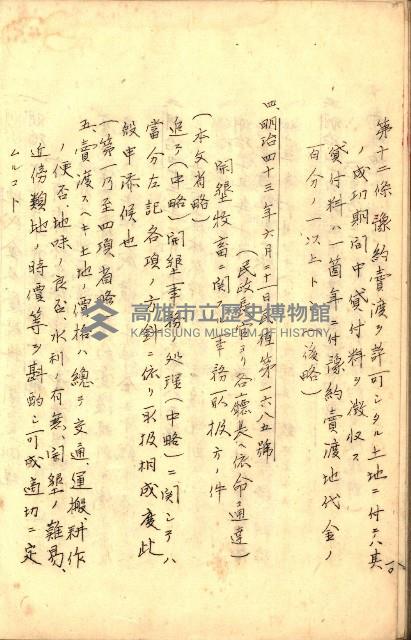 第十二條豫約賣渡ヲ許可シタル土地ニ付テハ其
ノ成功期間中貸付料ヲ徴収ス
貸付料ハ一箇年ニ付豫約賣渡地代金ノ
百分ノ一以上トス(後略)
四、明治四十三年六月二十一日 殖第一六八五號
(民政長官ヨリ各廳長ヘ依命通達)
開墾牧畜ニ関スル事務取扱方ノ件
(本文省略)
追テ(中略)開墾事務ノ処理(中略)ニ関シテハ
當分左記各項ノ方針ニ依リ取扱相成度此
段申添候也
一、第一乃至四項省略
五、賣渡スヘキ土地ノ價格ハ總テ交通、運搬、耕作
ノ便否、地味ノ良否、水利ノ有無、開墾ノ難易、
近傍類地ノ時價等ヲ斟酌シ可成適切ニ定
ムルコト
高雄市立歷史博物館
KAOHSIUNG MUSEUM OF HISTORY